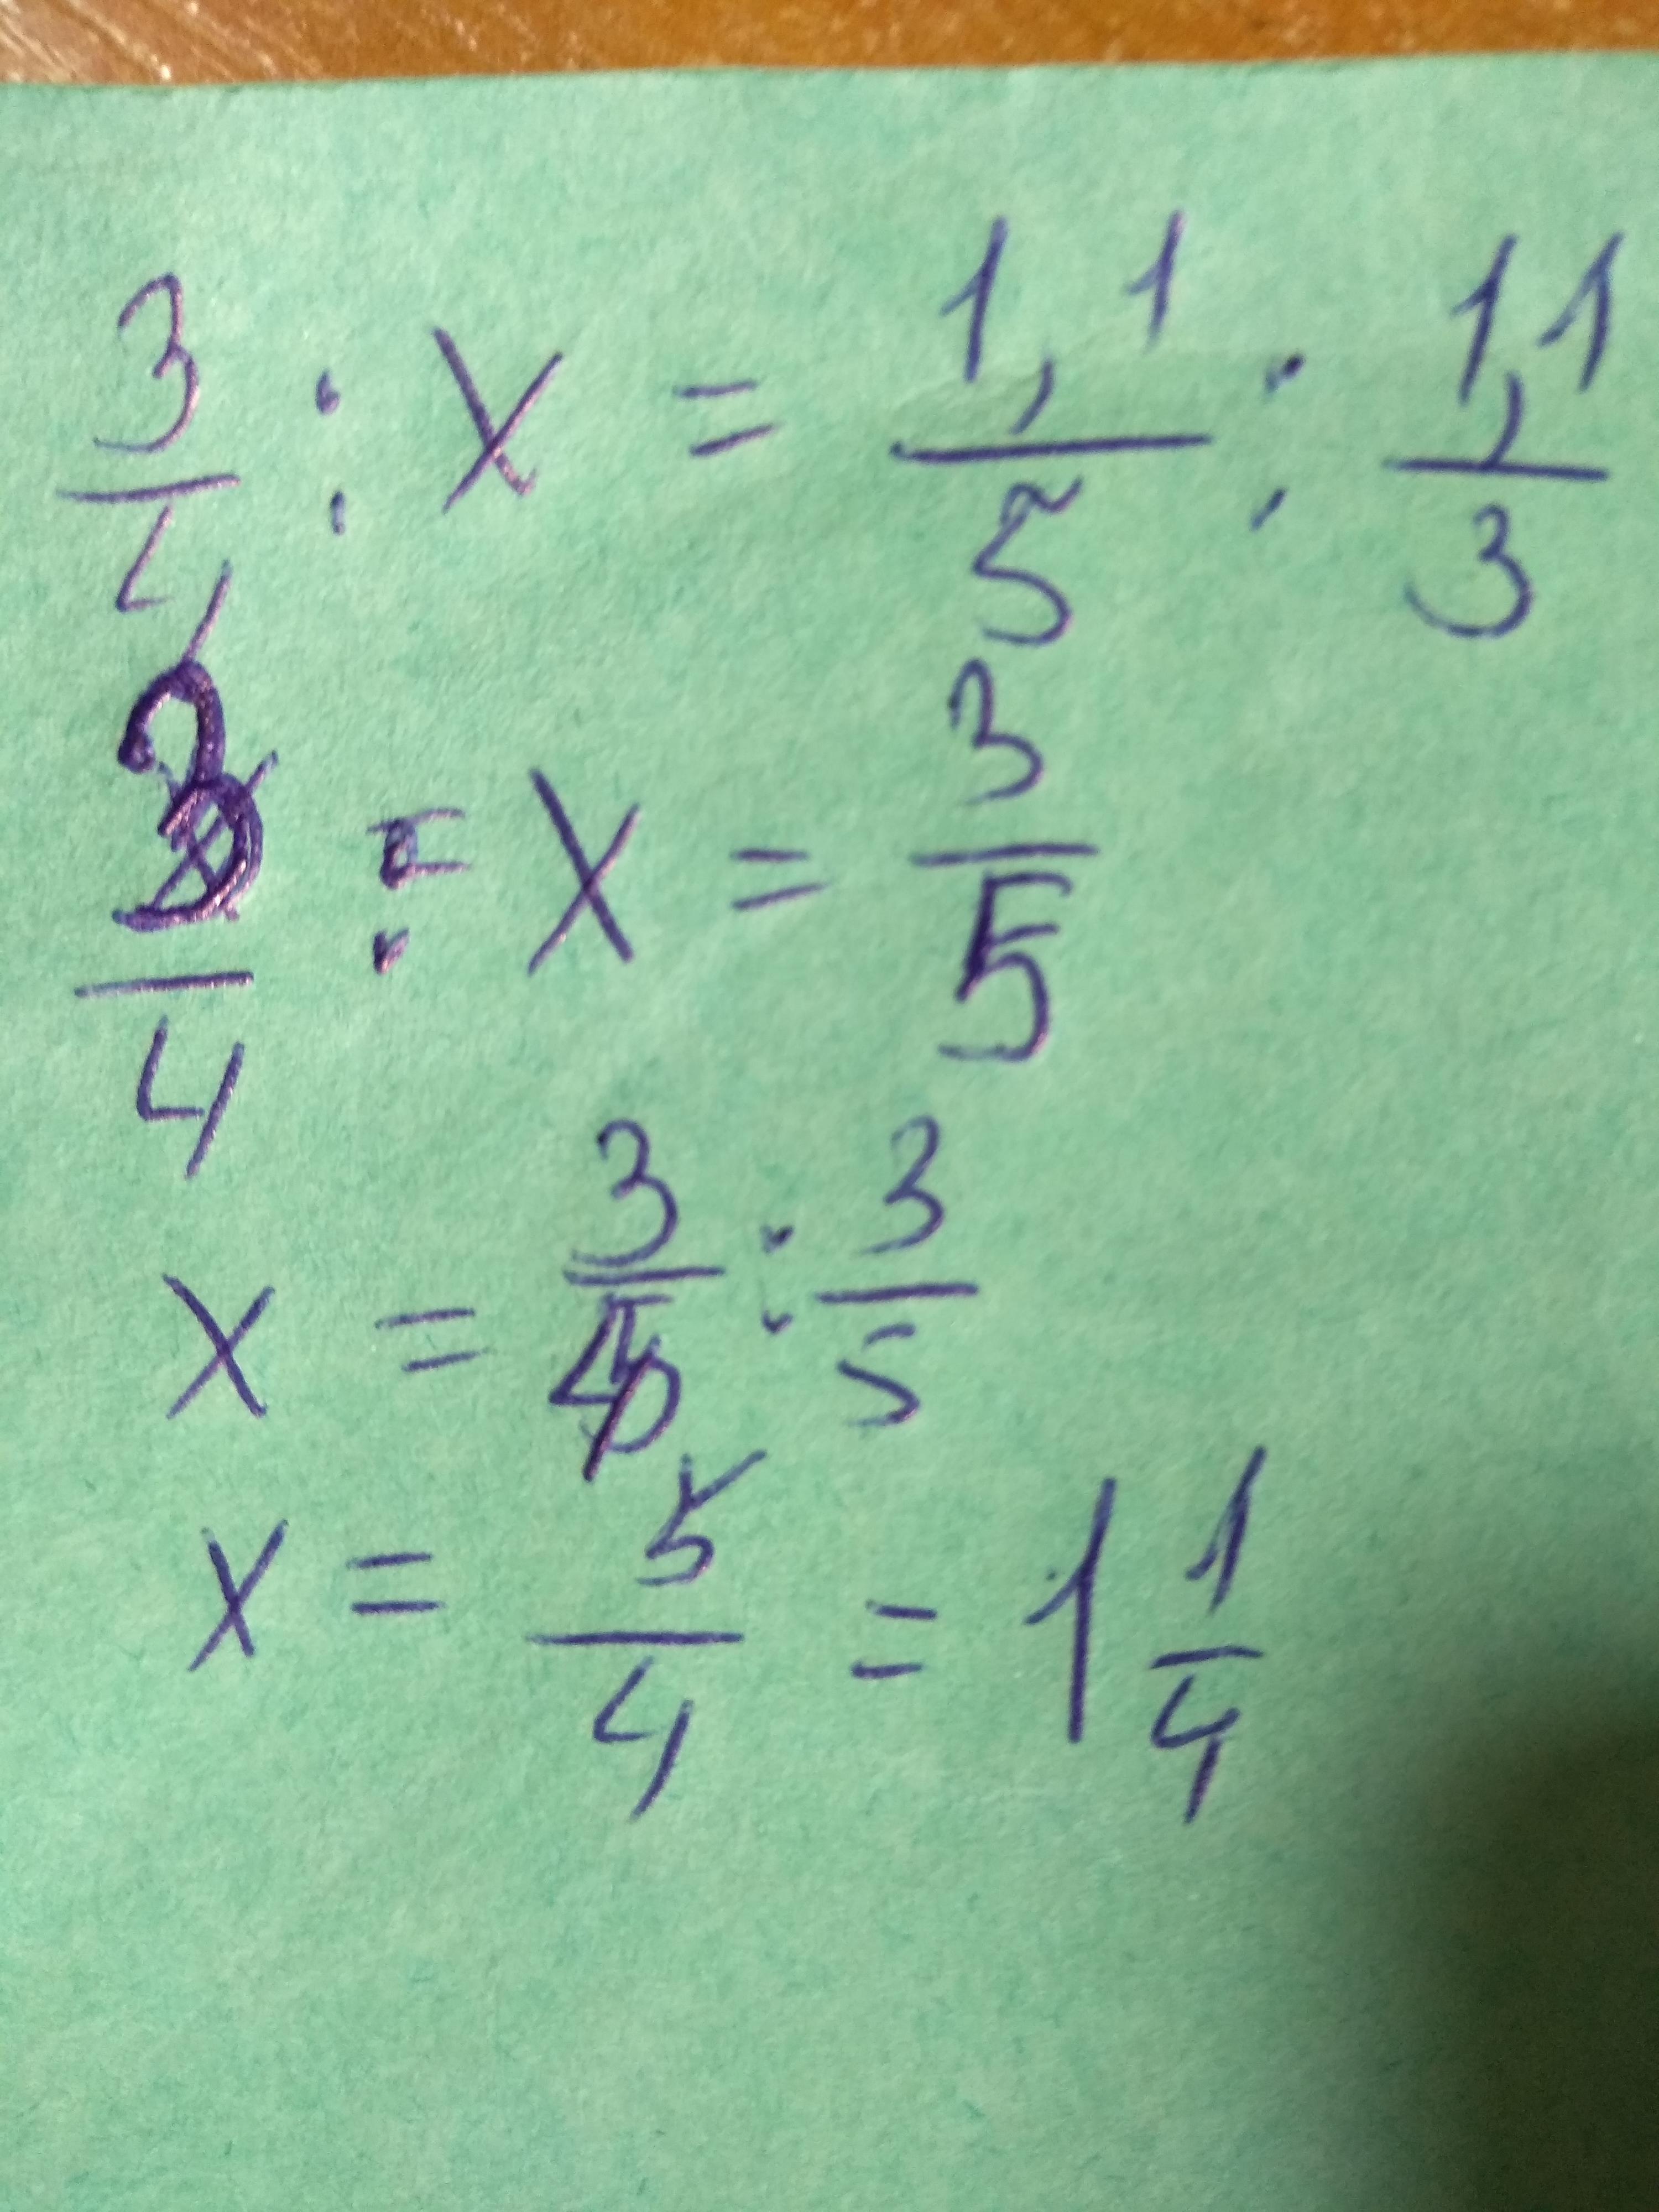 3/4 : x = 1,1/5 : 1,1/3
3/4 : x = 3/5
x = 3/4 : 3/5
x = 5/4 = 1 1/4